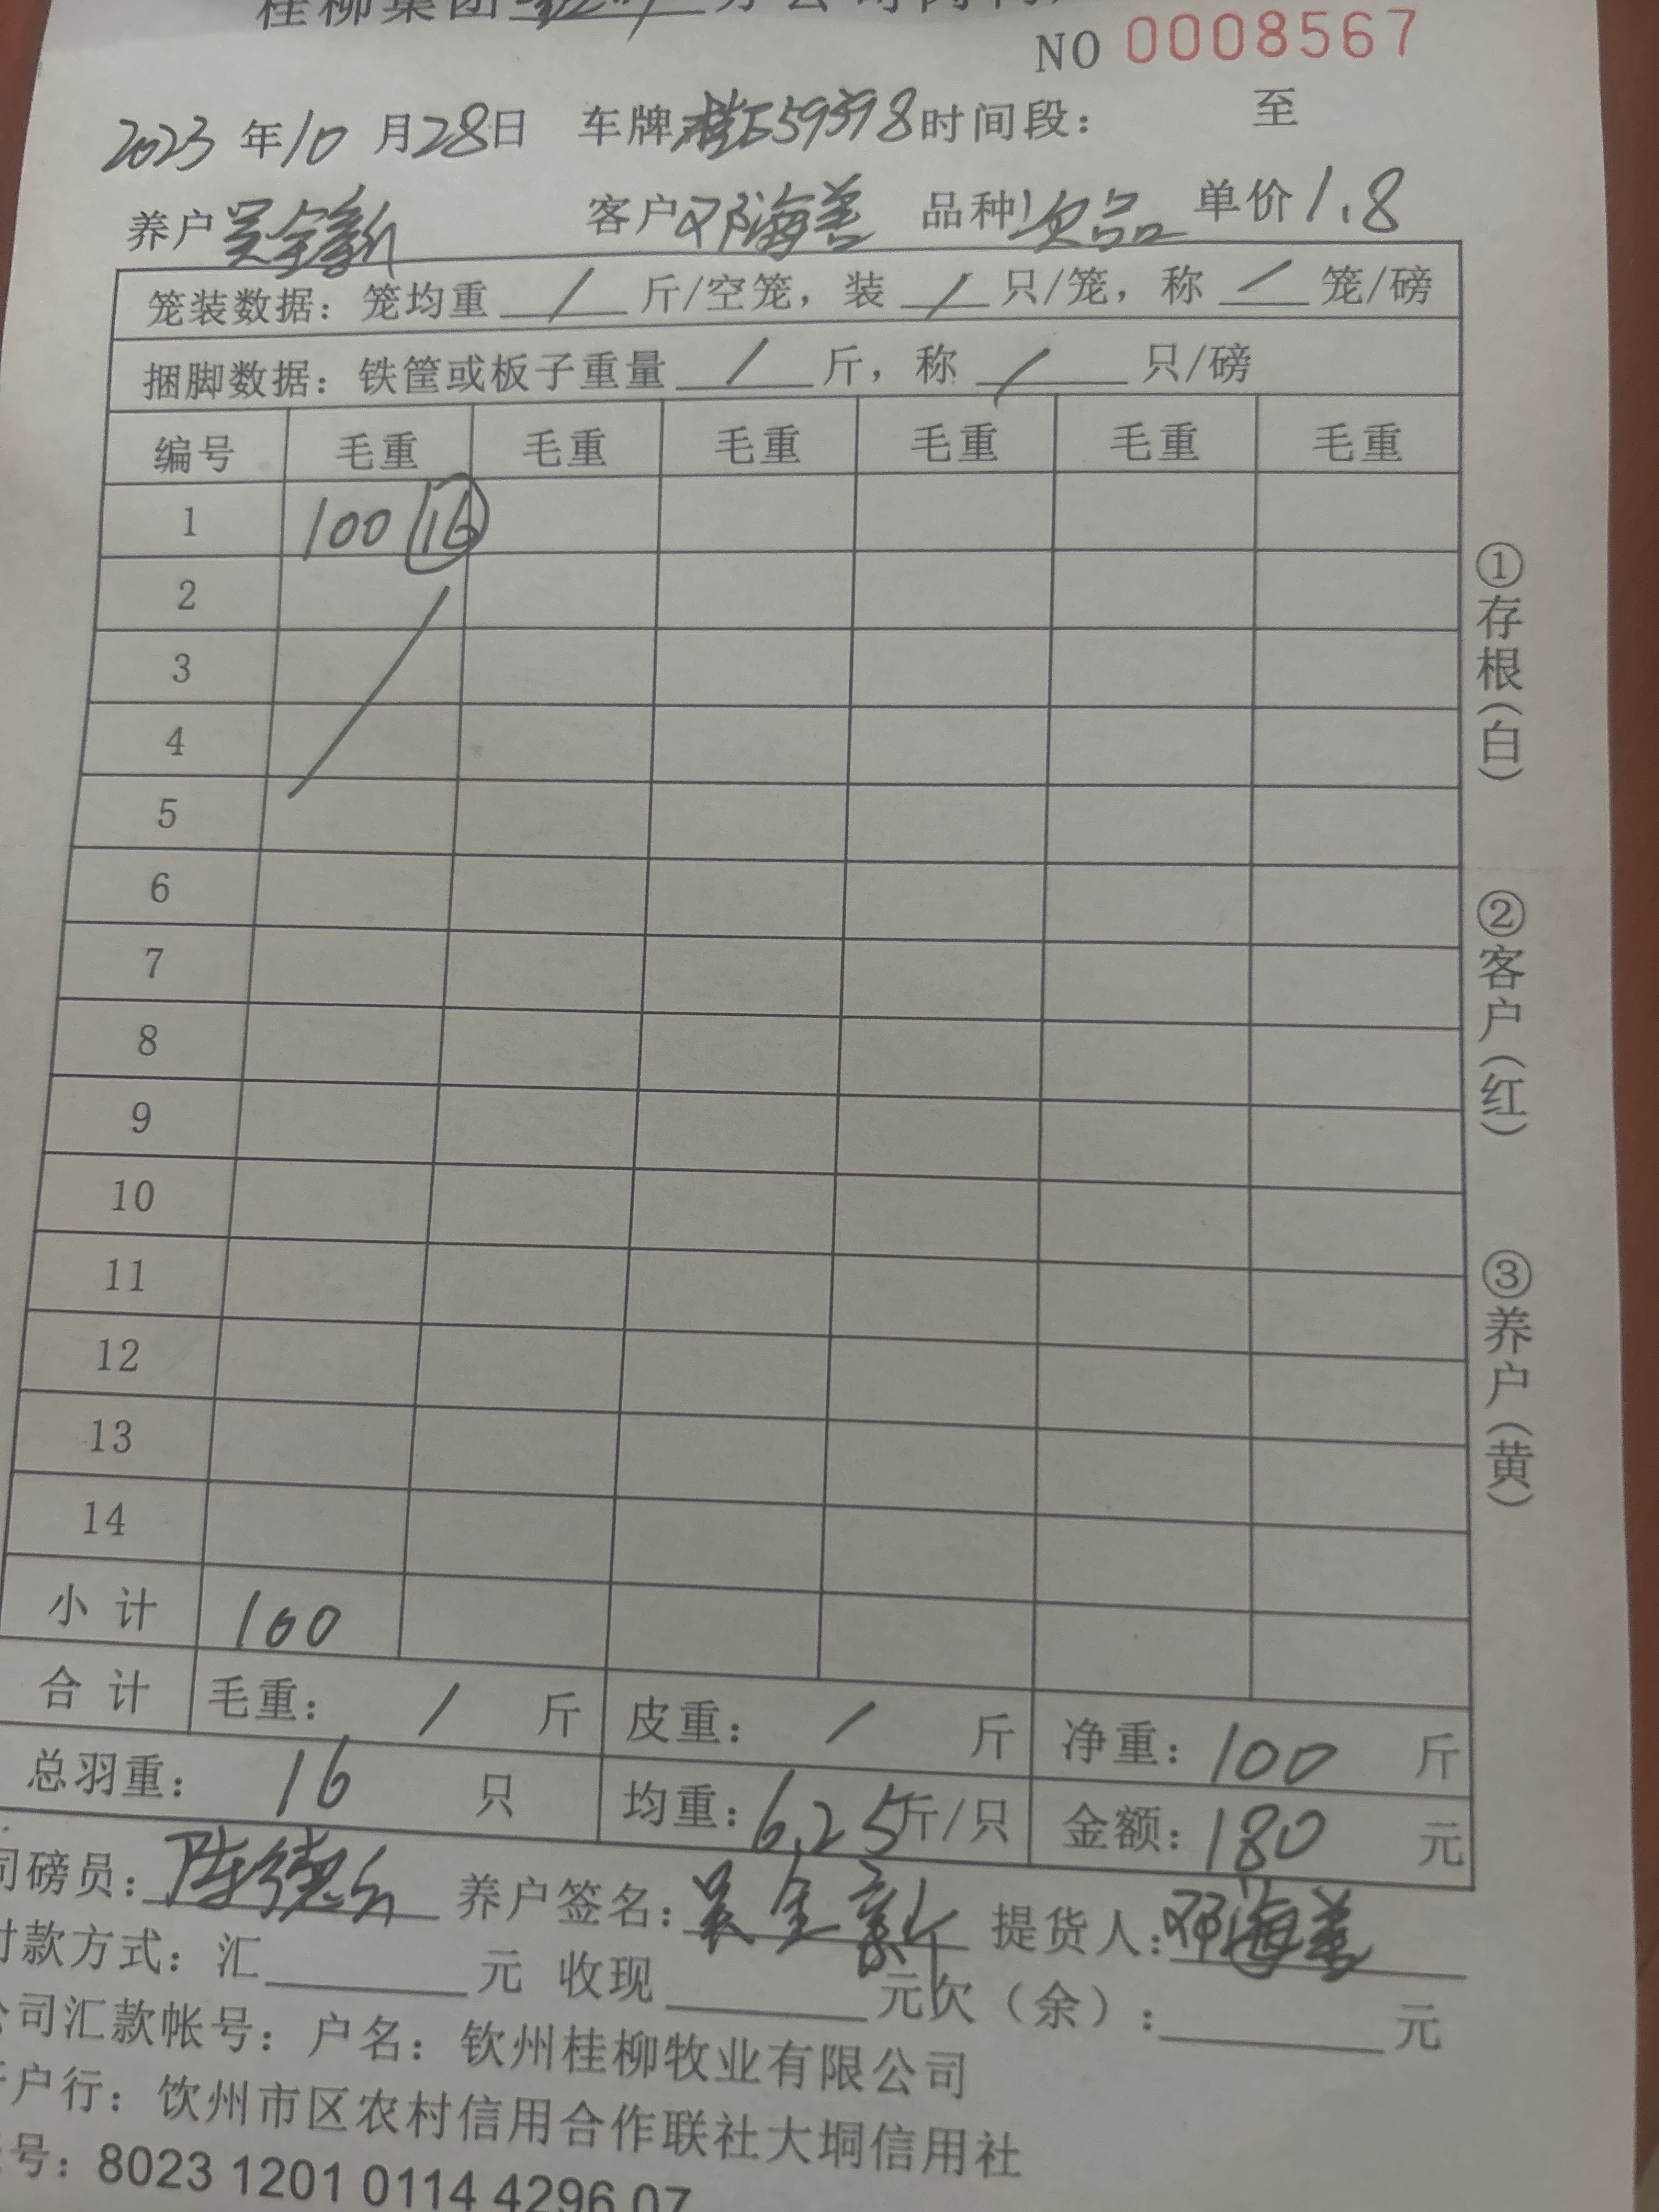 桂柳集团 分公司肉
NO 0008567
2023 年 10 月 28 日 车牌 桂E59398 时间段: 至
养户 吴全新 客户 邓海善 品种 次品 单价 1.8
笼装数据: 笼均重 / 斤/空笼, 装 / 只/笼, 称 / 笼/磅
捆脚数据: 铁筐或板子重量 / 斤, 称 / 只/磅
编号 毛重 毛重 毛重 毛重 毛重 毛重
1 100 16
2
3
4
5
6
7
8
9
10
11
12
13
14
小 计 100
合 计 毛重: / 斤 皮重: / 斤 净重: 100 斤
总羽重: 16 只 均重: 6.25 斤/只 金额: 180 元
司磅员: 陈德 养户签名: 吴全新 提货人: 邓海善
付款方式: 汇 元 收现 元 欠(余): 元
公司汇款帐号: 户名: 钦州桂柳牧业有限公司
开户行: 钦州市区农村信用合作联社大垌信用社
号: 8023 1201 0114 4296 07
①存根(白)
②客户(红)
③养户(黄)